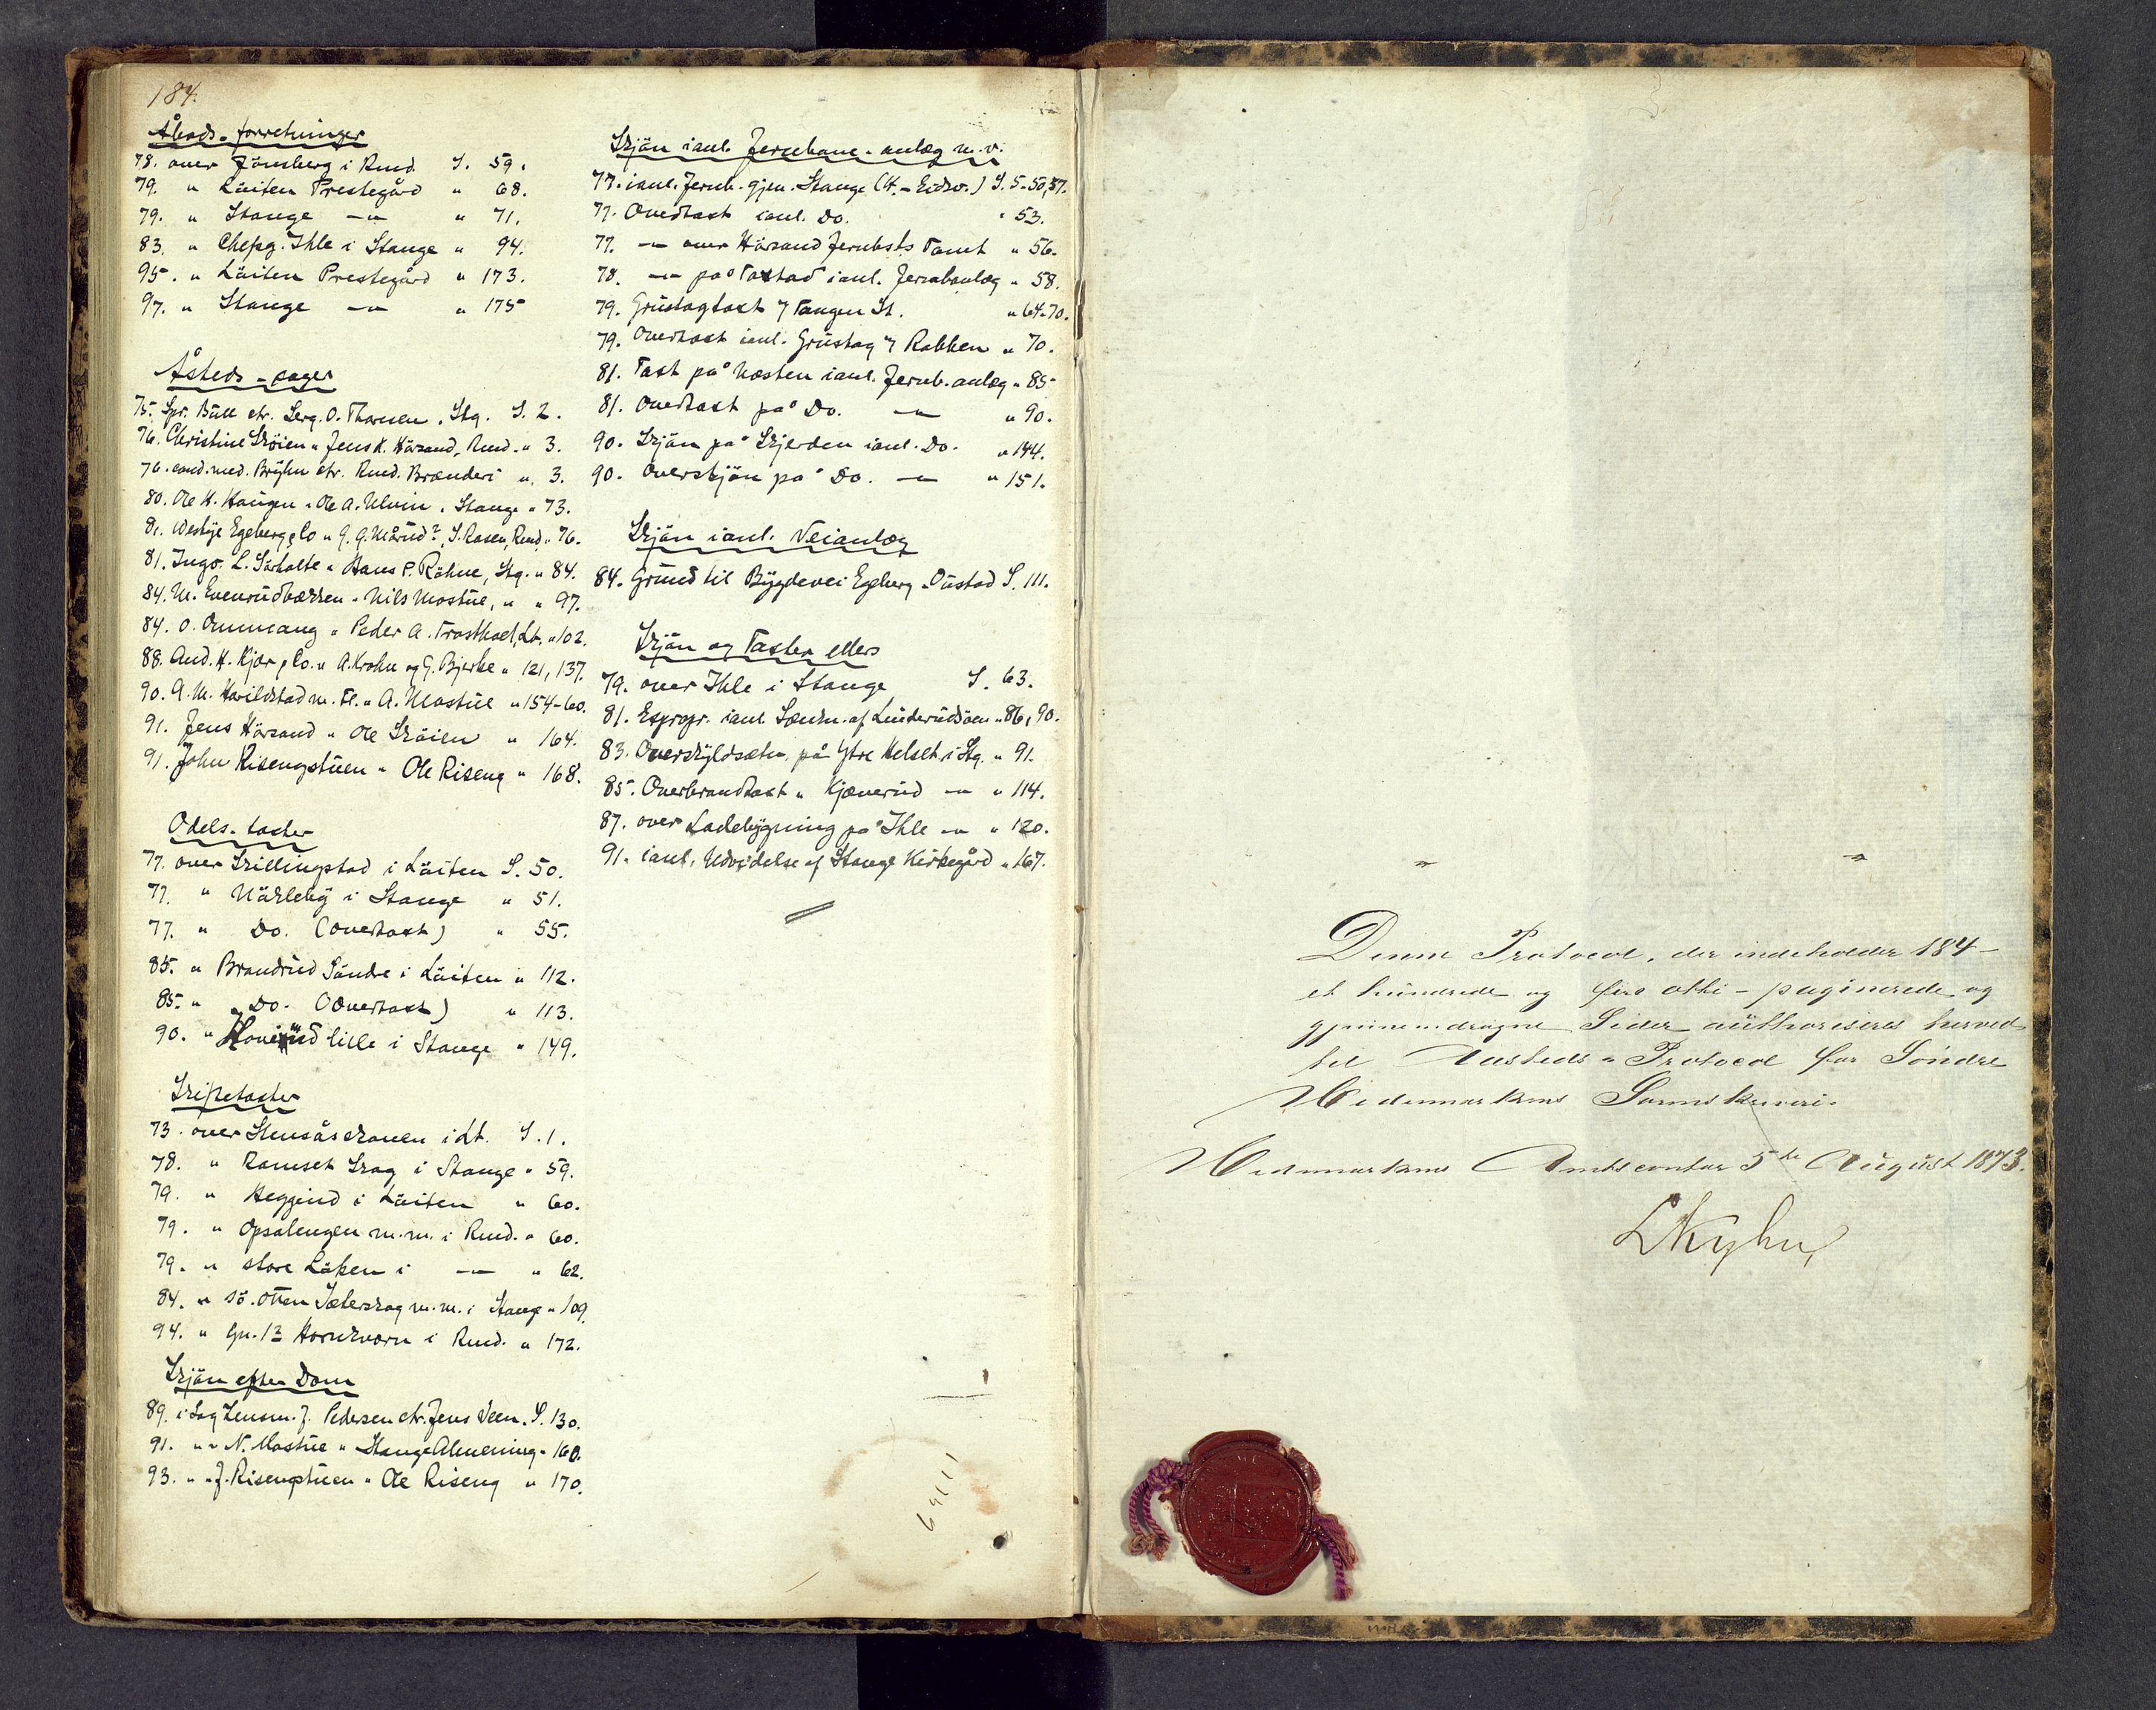 184.
Åbods-forretninger
78. over Jönsberg i Rmd. S. 59.
79. " Löiten Prestegård " 68.
79. " Stange —"— " 71.
83. " Chefsg. Ihle i Stange " 94.
95. " Löiten Prestegård " 173.
97. " Stange —"— " 175
Åsteds-sager
75. Spr. Bull ctr. Serg. O. Thorsen, Stg. S. 2.
76. Christine Sköien " Jens K. Hörsand, Rmd. " 3.
76. cand. med. Bryhn ctr. Rmd. Brænderi " 3.
80. Ole H. Haugen " Ole A. Ulvin, Stange " 73.
81. Westye Egeberg & Co " G. G. Mårud?, S. Rasen, Rmd. " 76.
81. Ingv. L. Sörholte " Hans P. Röhne, Stg. " 84.
84. M. Evenrudbakken " Nils Mostue, " " 97.
84. O. Ommang " Peder A. Frosthoel, Lt. " 102.
88. And. H. Kjær & Co. " A. Krohn og G. Bjerke " 121, 137.
90. A. M. Horildstad m. Fl. " A. Mostue " 154-60.
91. Jens Hörsand " Ole Sköien " 164.
91. John Risengstuen " Ole Riseng " 168.
Odels-taster
77. over Skillingstad i Löiten S. 50.
77. " Nökleby i Stange " 51.
77. " Do. (overtaxt) " 55.
85. " Brandrud Söndre i Löiten " 112.
85. " Do. (Overtaxt) " 113.
90. " lille i Stange " 149.
Skiftetaxter
73. over Stensåskroken i Lt. S. 1.
78. " Romset Skog i Stange " 59.
79. " Heggerud i Löiten " 60.
79. " Opsalengen m.m. i Rmd. " 60.
79. " store Löken i —"— " 62.
84. " sö. Otten Sæterskog m.m. i Stange " 109.
94. " Gn. 13 Hornkvern i Rmd. " 172.
Skjön efter Dom
89. i Sag Lensm. J. Pedersen ctr. Jens Veen. S. 130.
91. " " N. Mostue " Stange Almenning " 160.
93. " " J. Risengstuen " Ole Riseng " 170.
Skjön i anl. Jernbane-anlæg m.v.
77. i anl. Jernb. gjen. Stange (H.-Eidsv.) S. 5-50, 57.
77. Overtaxt i anl. Do. " 53.
77. —"— over Hörsand Jernbsts Tomt " 56.
78. —"— på Tostad i anl. Jernbanlæg " 58.
79. Grustagtaxt v/ Tangen St. " 64-70.
79. Overtaxt i anl. Grustag v/ Rabben " 70.
81. Taxt på Næsten i anl. Jernb. anlæg " 85
81. Overtaxt på Do. —"— " 90.
90. Skjön på Skjerden i anl. Do. " 144.
90. Overskjön på Do. —"— " 151.
Skjön i anl. Veianlæg
84. Grund til Bygdevei Egeberg-Oustad S. 111.
Skjön og Taxter ellers
79. over Ihle i Stange S. 63.
81. Expropr. i anl. Sænkn. af Linderudsöen " 86, 90.
83. Overskyldsætn. på Ytre Helset i Stg. " 91.
85. Overbrandtaxt " Kjönerud —"— " 114.
87. over Ladebygning på Ihle —"— " 120.
91. i anl. Udvidelse af Stange Kirkegård " 167.
Denne Protocol, der indeholder 184 -
et hundrede og fire otti - paginerede og
gjennemdragne Sider authoriseres herved
til Aasteds-Protocol for Söndre
Hedemarkens Sorenskriveri.
Hedemarkens Amtscontor 5te August 1873.